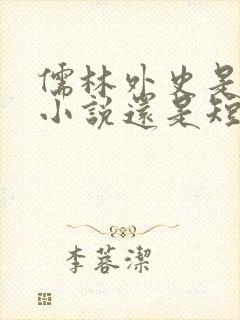 儒林外史是
小說還是短
李蓉潔